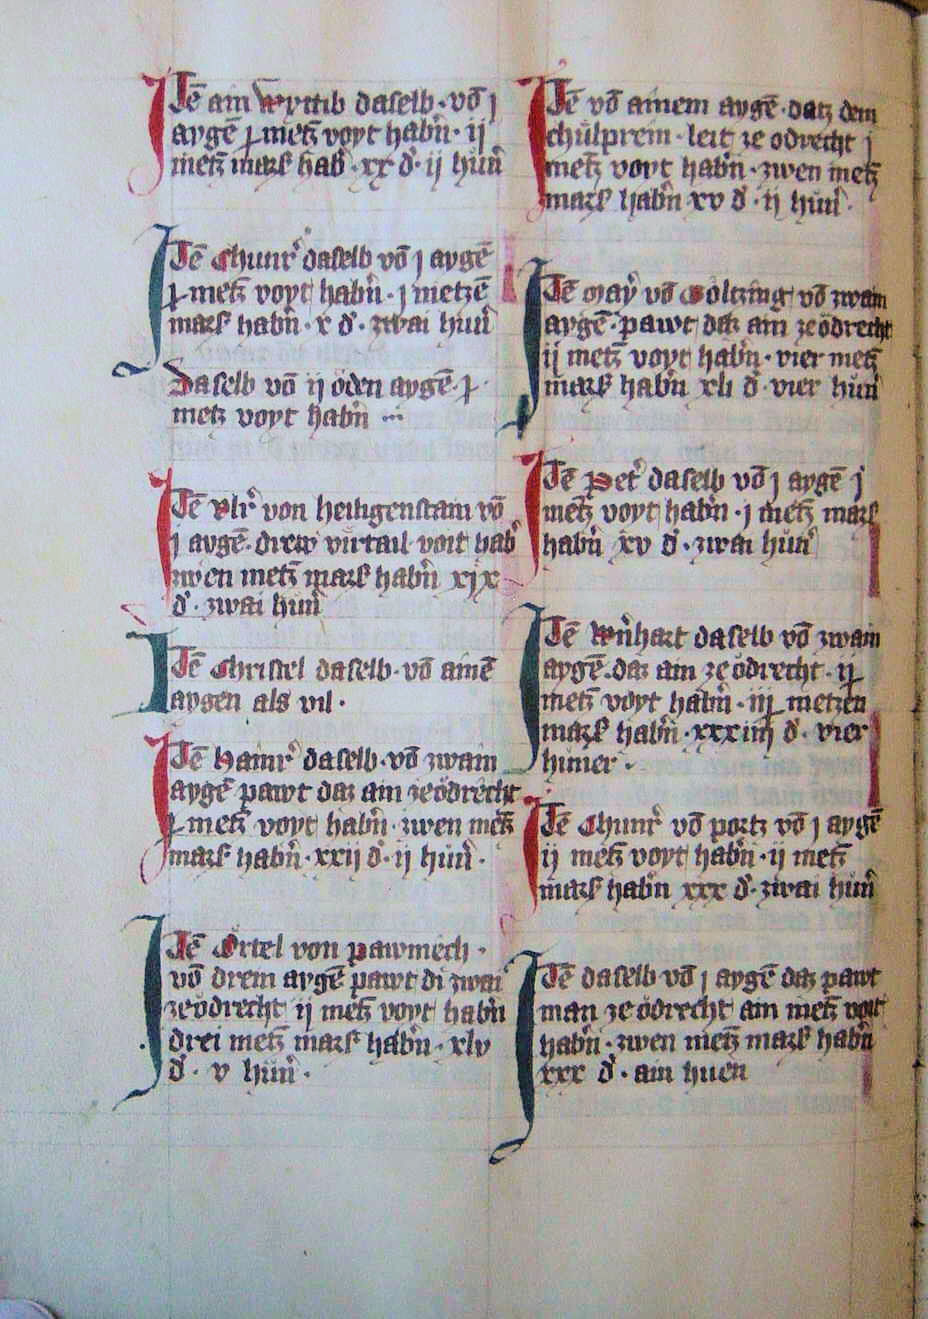 Itē ain wytib daselb · vō j
aygē ꝑ metz̄ voyt habn̄ · ij
metz̄ mark̄ hab̄ · xx d̄ · ij hun̄
Itē Chunr̄ daselb vō j aygē
metz̄ voyt habn̄ · j metzē
mark̄ habn̄ · x d̄ · zwai hun̄
Daselb vō ij öden aygē ·
metz voyt habn̄
Itē Vlr̄ von heiligenstain vō
j aygē · drew virtail voit hab̄
zwen metz̄ mark̄ habn̄ xix
d̄ · zwai hun̄
Itē Christel daselb · vō ainē
aygen als vil ·
Itē Hainr̄ daselb · vō zwain
aygē pawt daz ain zeödrecht
metz̄ voyt habn̄ · zwen metz̄
mark̄ habn̄ · xxij d̄ · ij hun̄ ·
Itē Örtel von pawmech ·
vō drein aygē pawt di zwai
zeödrecht ij metz̄ voyt habn̄
drei metz̄ mark̄ habn̄ · xlv
d̄ · v hün̄ ·
Itē vō ainem aygē · datz dem
chülprein · leit ze ödrecht j
metz̄ voyt habn̄ · zwen metz̄
mark̄ habn̄ xv d̄ · ij hün̄ ·
Itē May̆ vō Göltzing vō zwain
aygē · pawt daz ain zeödrecht
ij metz̄ voyt habn̄ · vier metz̄
mark̄ habn̄ xli d̄ · vier hün̄
Itē Pet̄ daselb vō j aygē j
metz̄ voyt habn̄ · j metz̄ mark̄
habn̄ xv d̄ · zwai hün̄
Itē Wn̄hart daselb vō zwain
aygē · daz ain zeödrecht ·
metz̄ voyt habn̄ · metzen
mark̄ habn̄ · xxxiiij d̄ · vier
hüner ·
Itē Chunr̄ vō portz vō j aygē
ij metz̄ voyt habn̄ · ij metz̄
mark̄ habn̄ xxx d̄ · zwai hün̄
Itē daselb vō j aygē daz pawt
man zeödrecht ain metz̄ voyt
habn̄ · zwen metz̄ mark̄ habn̄
xxx d̄ · ain huen